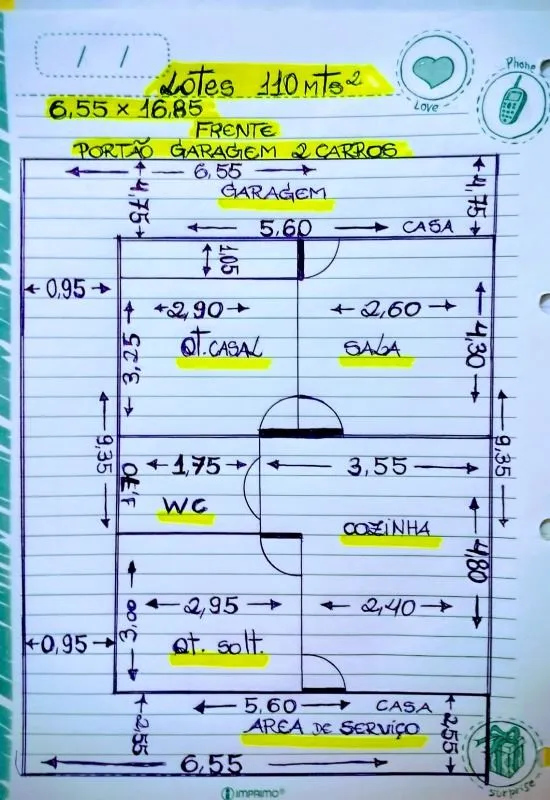 / /
Phone
Love
LOTES 110 MTS²
6,55 × 16,85
FRENTE
PORTÃO GARAGEM 2 CARROS
6,55
4,75
4,75
GARAGEM
5,60 CASA
1,05
0,95
2,90
2,60
QT. CASAL
SALA
3,25
4,30
9,35
9,35
1,75
3,55
1,70
WC
COZINHA
4,80
2,95
2,40
3,00
QT. SOLT.
0,95
5,60 CASA
AREA DE SERVIÇO
2,55
2,55
6,55
IMPRIMO®
surprise